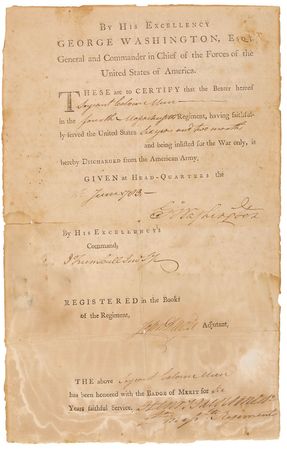 By His Excellency
GEORGE WASHINGTON, Esq;
General and Commander in Chief of the Forces of the
United States of America.
THESE are to CERTIFY that the Bearer hereof
Serjeant
in the fourth Massachusetts Regiment, having faithful-
ly served the United States six years and two months
and being inlisted for the War only, is
hereby Discharged from the American Army.
Given at Head-Quarters the
June 1783.
G Washington
By His Excellency's
Command,
J Trumbull Jun
REGISTERED in the Books
of the Regiment,
Adjutant,
THE above Serjeant
has been honored with the Badge of Merit for Six
Years faithful Service.
Regiment